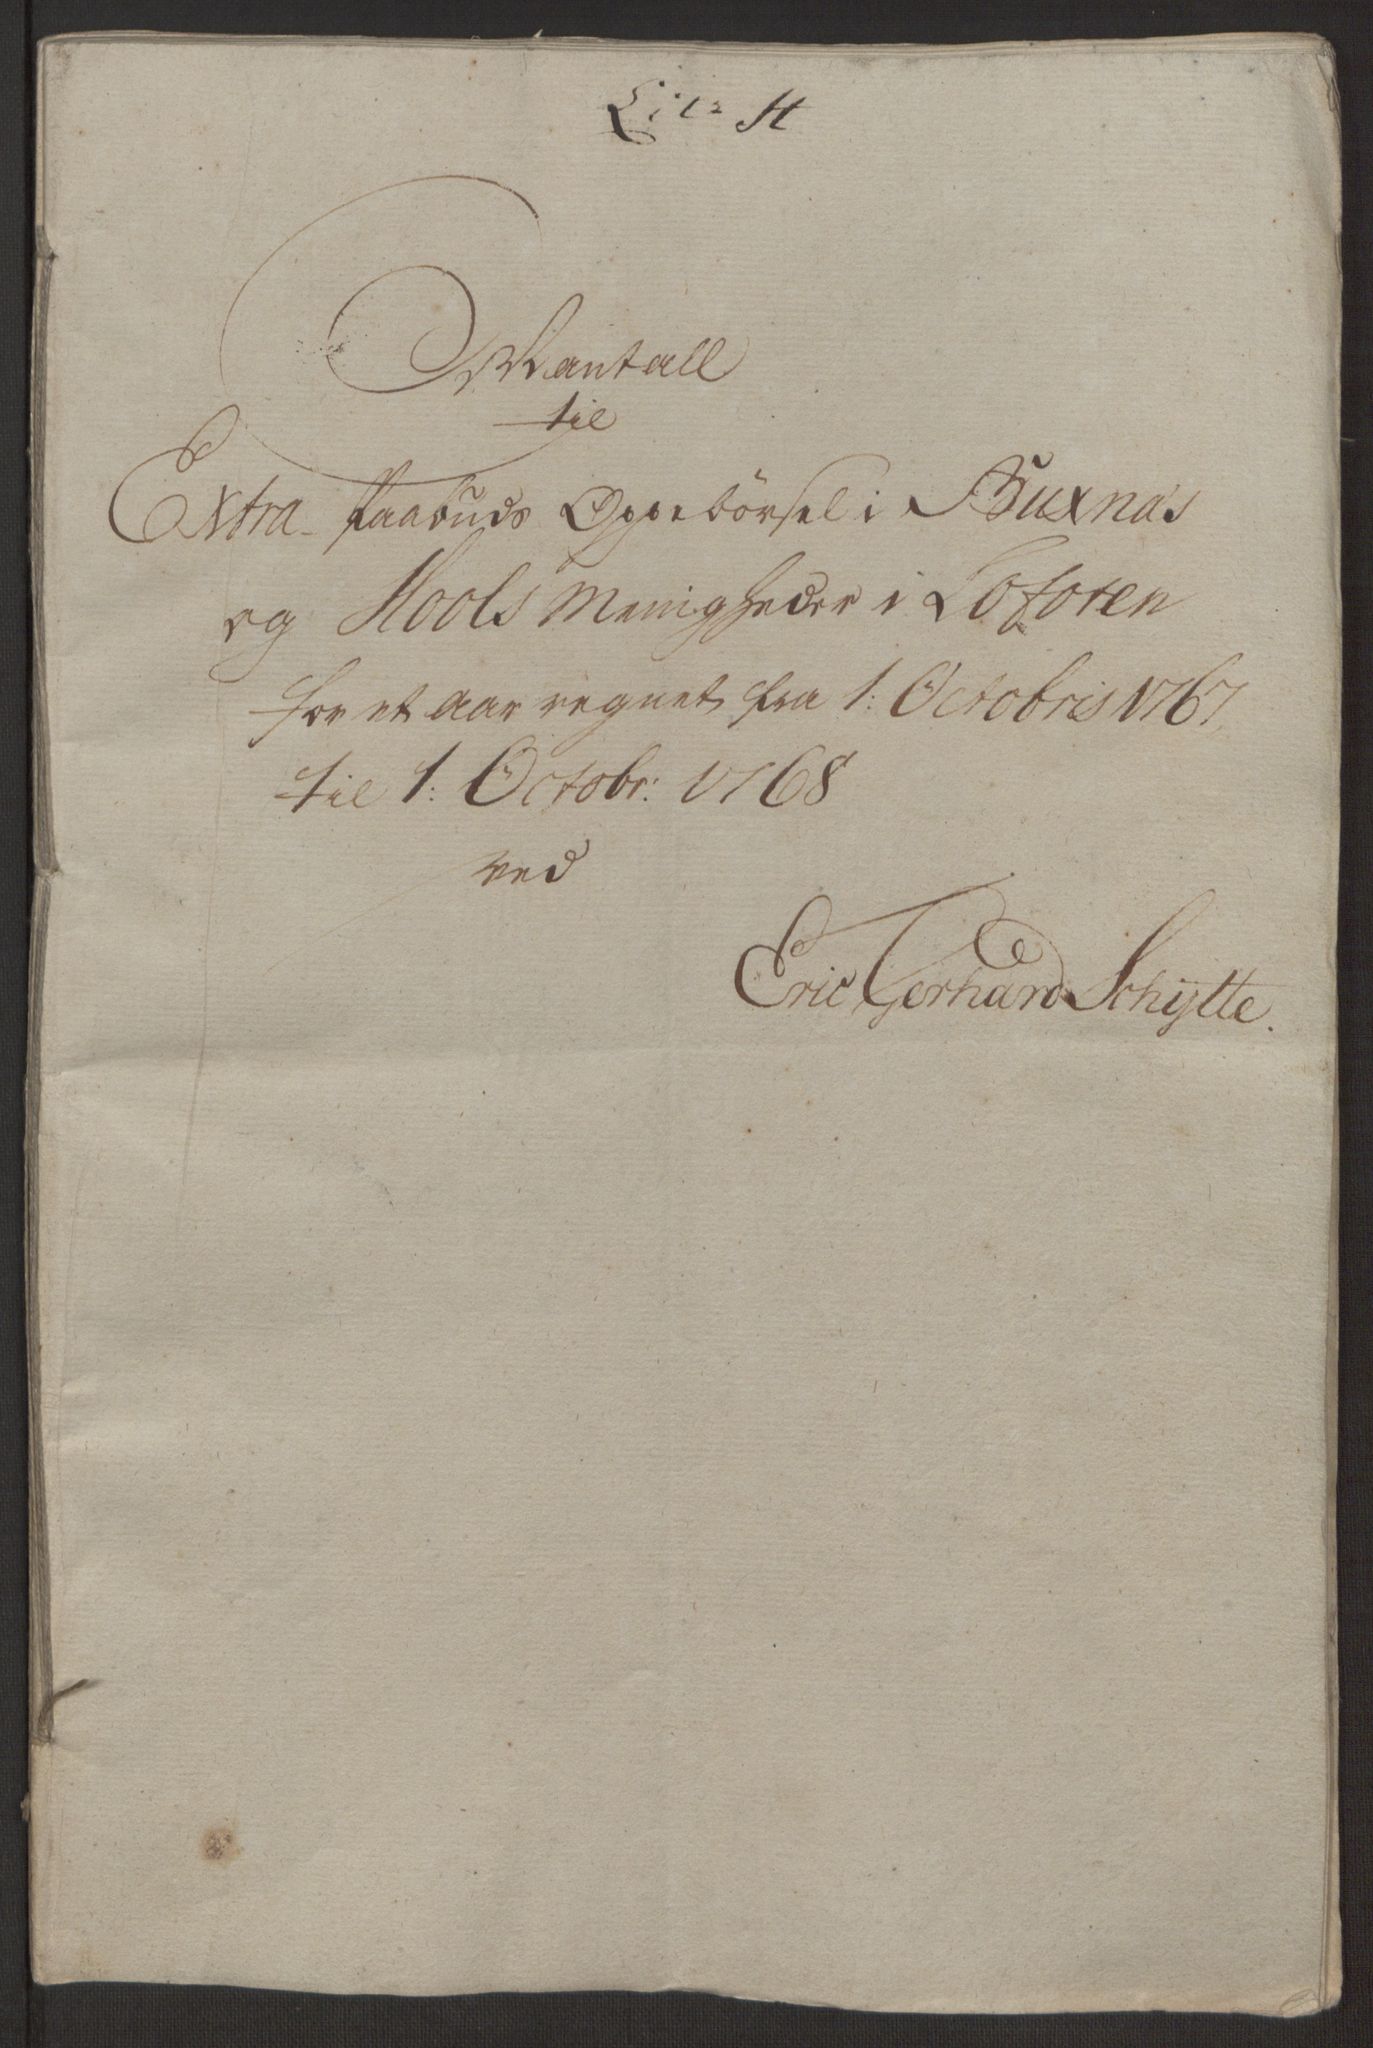 Lit: H
Mantall
til
Extra Paabuds Oppebörsel i Buxnæs
og Hools Menigheder i Lofoten
for et aar regnet fra 1: Octobris 1767
til 1: Octobr: 1768
ved
Eric Gerhard Schÿtte.